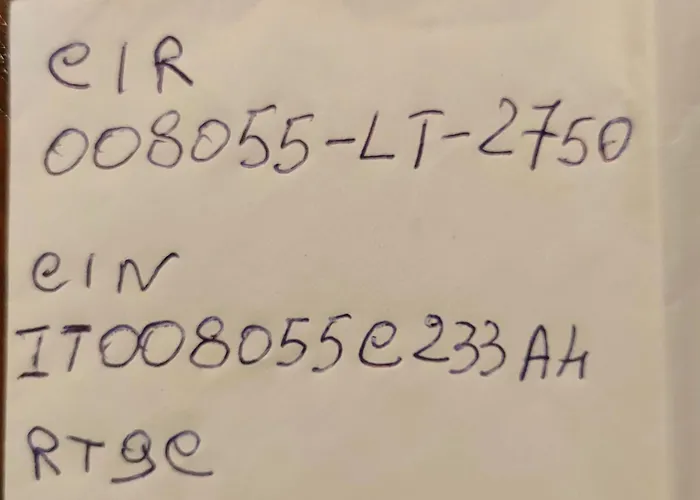 CIR
008055-LT-2750
CIN
IT008055C233A4
RT9C